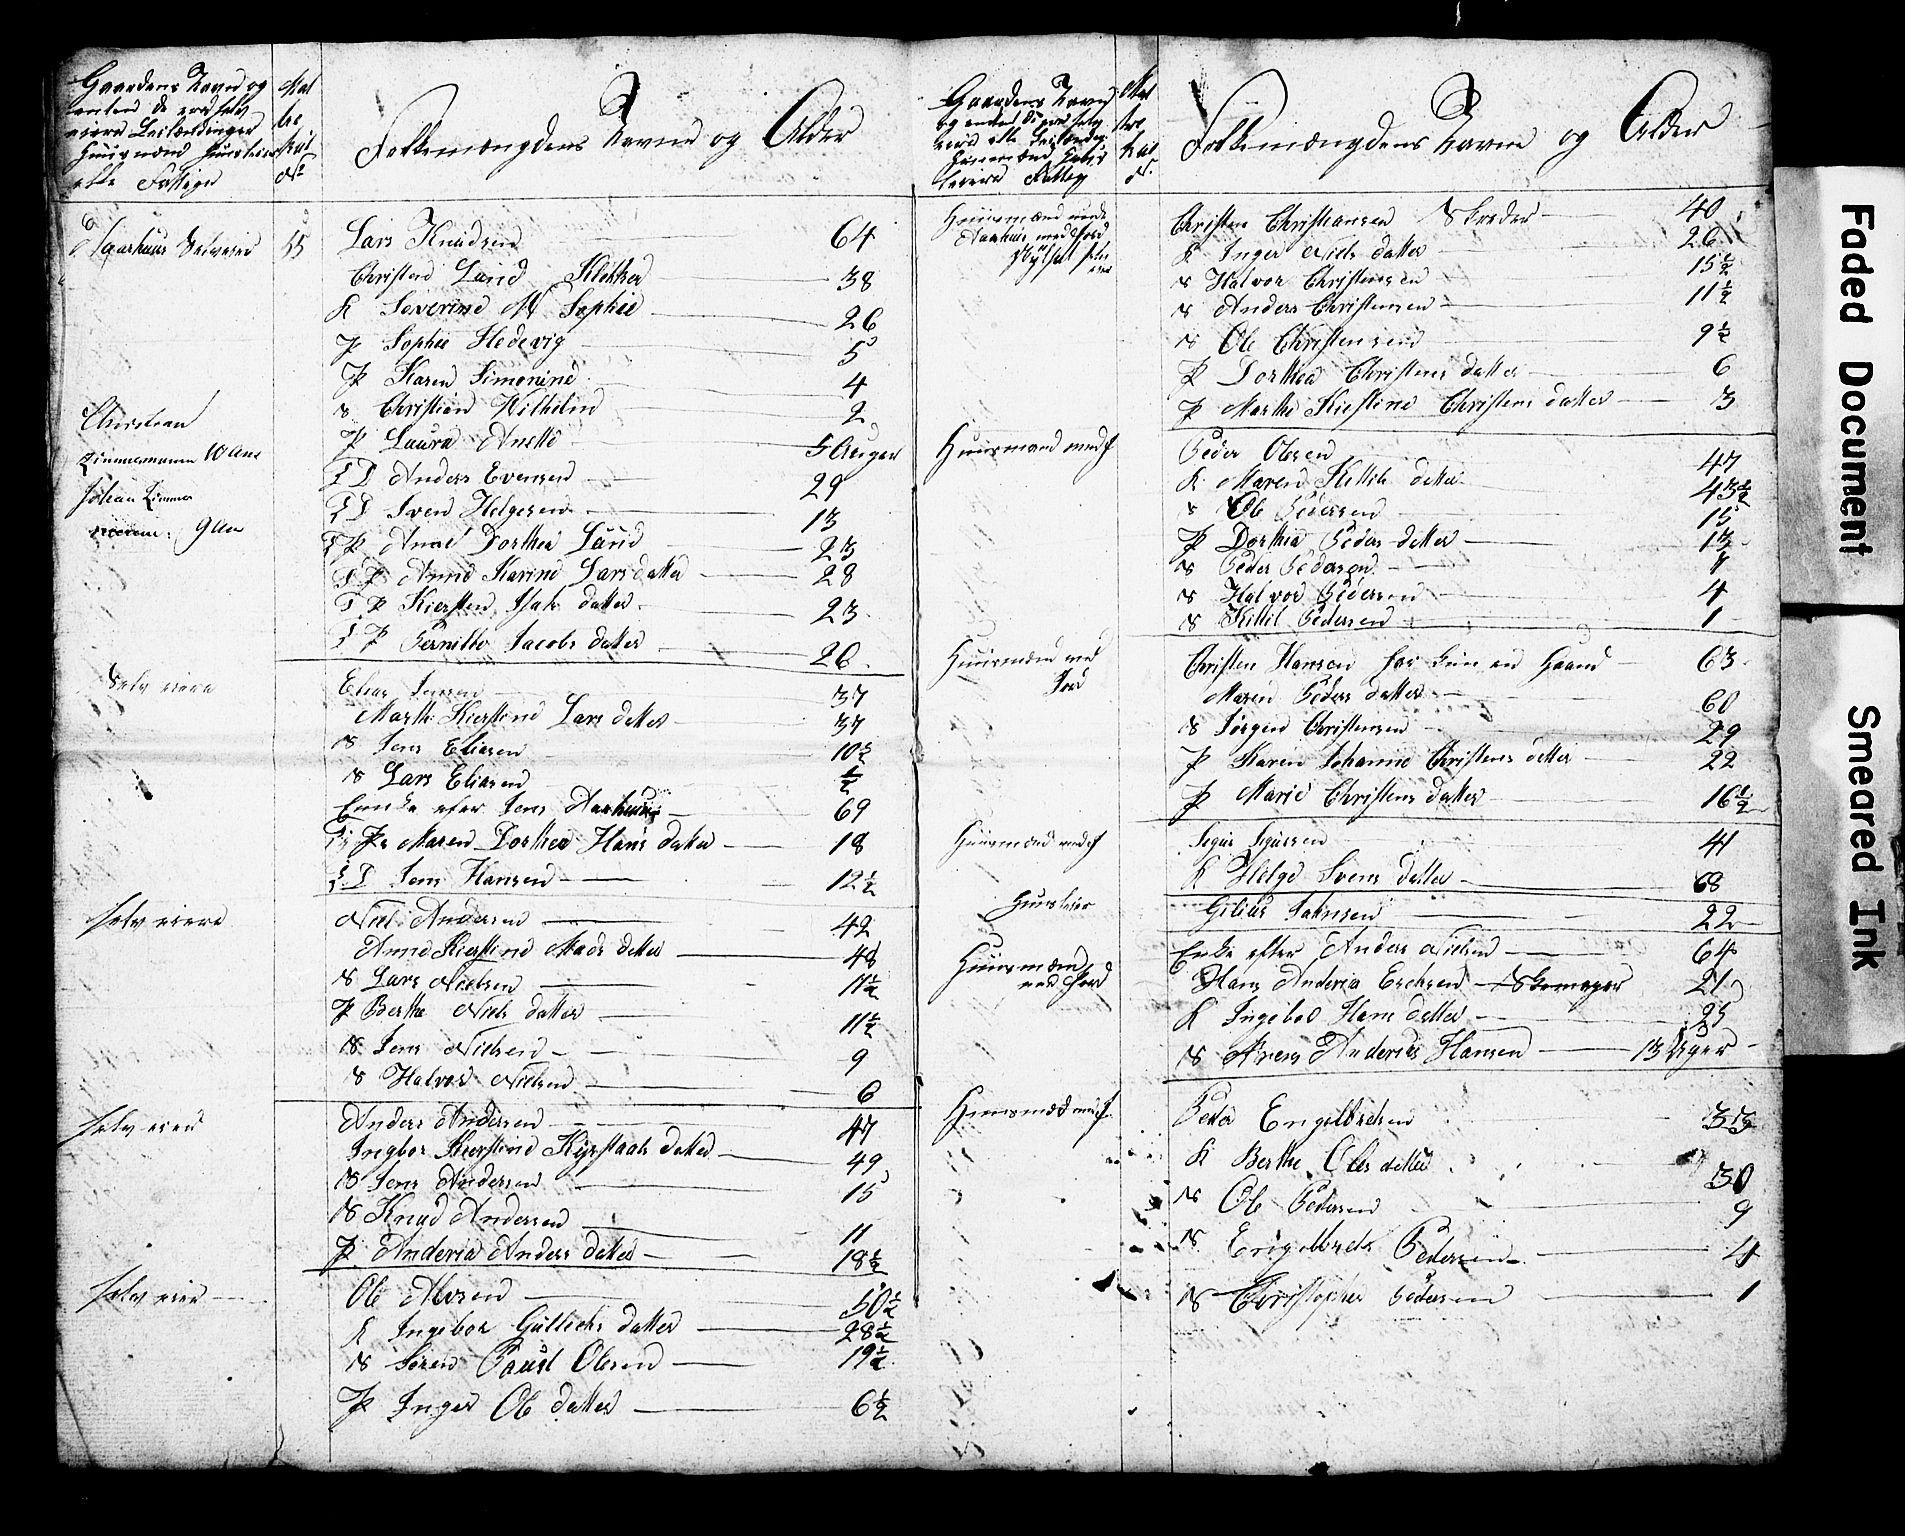 Gaardens Navn og
enten de ere selv
eiere Leilændinger
Huusmænd Huusleier
elle Fattige
Mat
tre
kul
No
Folkemængdens Navne og Alder
Aarhuus Selveier 55 Lars Knudsen 64
Christen Lund Klokker 38
K Severine M Sophie 26
P Sophie Hedevig 5
P Karen Simonine 4
S Christian Wilhelm 2
Christian
Zimmermann 10 Aar
Johan Zimmer
mann: 9 Aar
P Laura Anette 5 Auger
T D Anders Evensen 29
T D Sven Helgesen 13
T P Anne Dorthea Lund 23
T P Anne Karine Lars datter 28
T P Kiersten Isak datter 23
T P Pernille Jacobs datter 26
Selv eiere Elias Jensen 37
Marthe Kierstine Lars datter 37
S Jens Eliasen 10½
S Lars Eliasen ½
Enke efter Jens Aarhuus 69
T: P Maren Dorthea Hans datter 18
T. D Jens Hansen 12½
selv eiere Niels Andersen 42
Anne Kierstine Mads datter 48
S Lars Nielsen 11½
P Berthe Niels datter 11½
S Jens Nielsen 9
S Halvor Nielsen 6
selv eier Anders Andersen 47
Ingbor Kierstine Kirstads datter 49
S Jens Andersen 15
S Knud Andersen 11
P Anderia Anders datter 18½
selv eier Ole Alvsen 50½
K Ingebor Gulleiks datter 28½
S Søren Poust Olesen 19½
P Inger Ole datter 6½
Gaardens Navn
og enten de ere selv
eiere elle Leilændin
Huusmænd Huus
leiere Fattig
Mat
tre
kul
N.
Folkemængdens Navne og Alder
Huusmænd under
Aarhuus med Jord
Christen Christiansen Skreder 40
K Inger Niels datter 26
S Halvor Christensen 15½
S Anders Christensen 11½
S Ole Christensen 9½
P Dorthea Christens datter 6
P Marthe Kierstine Christens datter 3
Huusmand med J Peder Olesen 47
K Maren Kittils datter 43½
S Ole Pedersen 15
P Dorthea Peders datter 13
S Peder Pedersen 7
S Halvor Pedersen 4
S Kittil Pedersen 1
Huusmænd med
Jord
Christen Hansen har kun en Haand 63
Maren Peders datter 60
S Jørgen Christensen 29
P Karen Johanne Christens datter 22
P Marie Christens datter 16½
Huusmænd med J Segur Segursen 41
K Helge Svens datter 68
Huusleier Gilius Johnsen 22
Huusmænd
med Jord
Enke efter Anders Nielsen 64
Hans Anderia Erchsen Skomager 21
K Ingebor Hans datter 25
S Anders Hansen 13 Uger
Huusmænd med J. Peder Engelbretsen 33
K Berthe Oles datter 30
S Ole Pedersen 9
S Engelbret Pedersen 4
S Christopher Pedersen 1
Faded Document
Smeared Ink